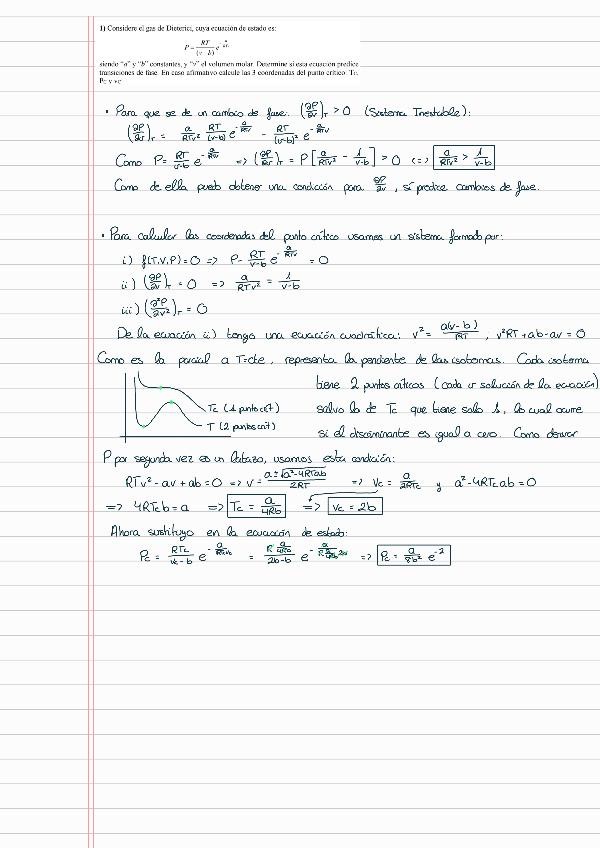 1) Considere el gas de Dieterici, cuya ecuación de estado es:
P = RT/(v - b) e^(-a/RTv)
siendo "a" y "b" constantes, y "v" el volumen molar. Determine si esta ecuación predice
transiciones de fase. En caso afirmativo calcule las 3 coordenadas del punto crítico: Tc,
Pc y vc
• Para que se de un cambio de fase: (∂P/∂v)_T > 0 (Sistema Inestable):
(∂P/∂v)_T = a/RTv² RT/(v-b) e^(-a/RTv) - RT/(v-b)² e^(-a/RTv)
Como P = RT/v-b e^(-a/RTv) => (∂P/∂v)_T = P[a/RTv² - 1/v-b] > 0 <=> a/RTv² > 1/v-b
Como de ella puedo obtener una condición para ∂P/∂v, sí predice cambios de fase.
• Para calcular las coordenadas del punto crítico usamos un sistema formado por:
i) f(T,V,P) = 0 => P - RT/v-b e^(-a/RTv) = 0
ii) (∂P/∂v)_T = 0 => a/RTv² = 1/v-b
iii) (∂²P/∂v²)_T = 0
De la ecuación ii) tengo una ecuación cuadrática: v² = a(v-b)/RT, v²RT + ab - av = 0
Como es la parcial a T=cte, representa la pendiente de las isotermas. Cada isoterma
tiene 2 puntos críticos (cada v solución de la ecuación)
Tc (1 punto crít)
salvo la de Tc que tiene solo 1, lo cual ocurre
T (2 puntos crít)
si el discriminante es igual a cero. Como derivar
P por segunda vez es un latazo, usamos esta condición:
RTv² - av + ab = 0 => v = a ± √(a² - 4RTab)/2RT => Vc = a/2RTc y a² - 4RTc ab = 0
=> 4RTc b = a => Tc = a/4Rb => Vc = 2b
Ahora sustituyo en la ecuación de estado:
Pc = RTc/vc-b e^(-a/RTcvc) = R a/4Rb / 2b-b e^(-a/R a/4Rb 2b) => Pc = a/8b² e^-2